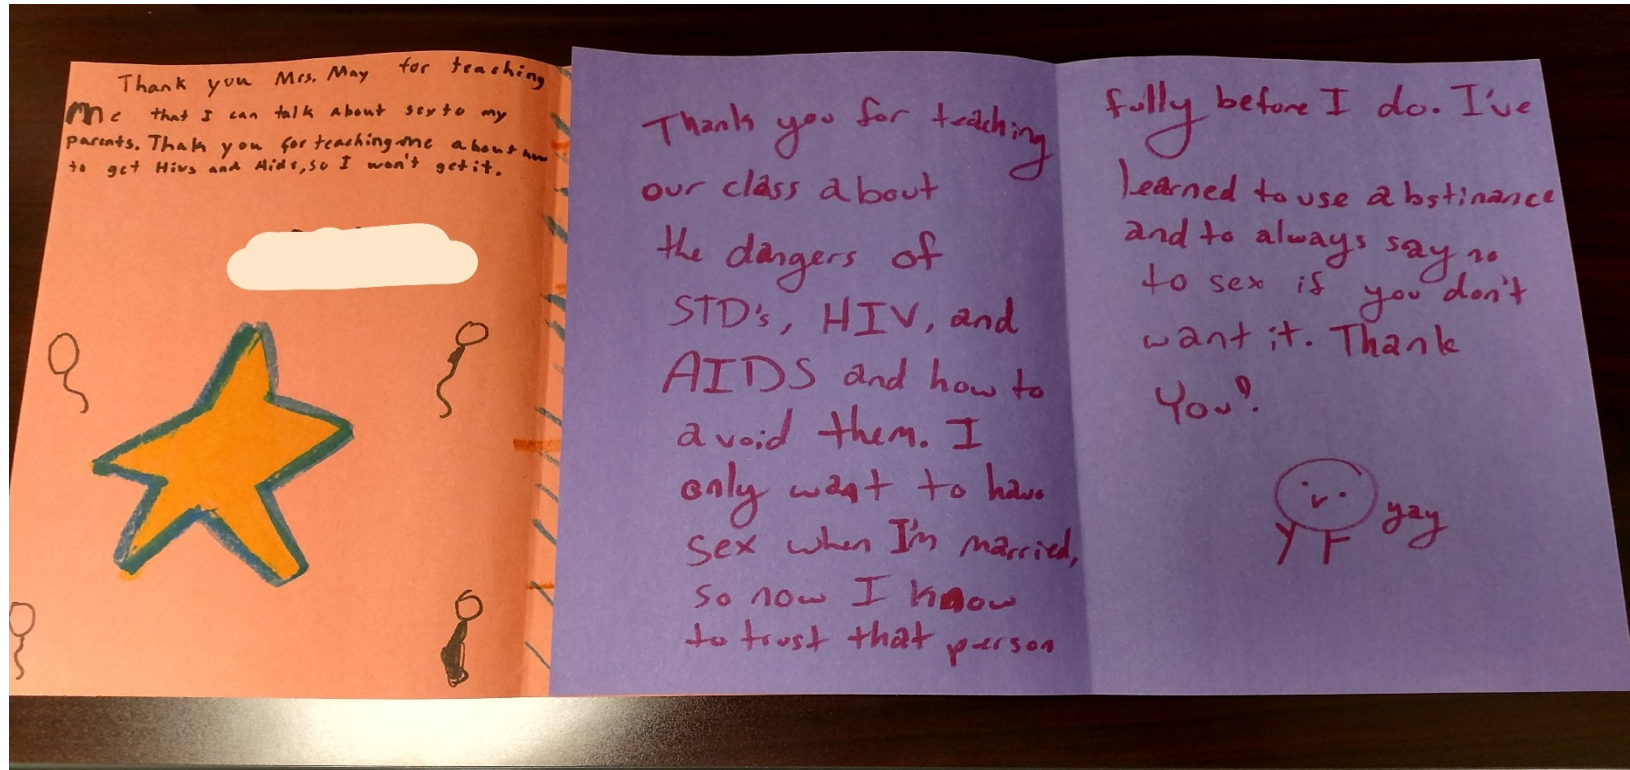 Thank you Mrs. May for teaching
Me that I can talk about sex to my
parents. Thak you for teaching me about how
to get Hivs and Aids, so I won't get it.
Thank you for teaching
our class about
the dangers of
STD's, HIV, and
AIDS and how to
avoid them. I
only want to have
sex when I'm married,
so now I know
to trust that person
fully before I do. I've
learned to use abstinance
and to always say no
to sex if you don't
want it. Thank
You!
yay